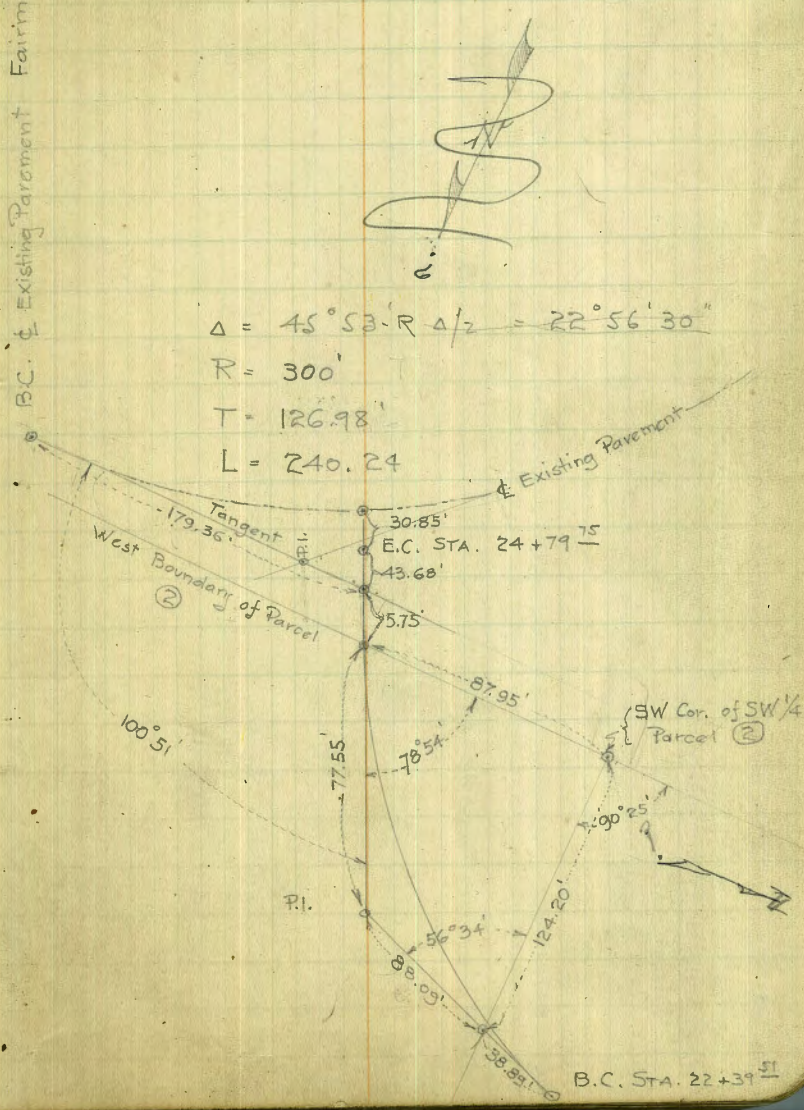 B.C. ₵ Existing Parement Fairm
N
Δ = 45°53' R Δ/2 = 22°56'30"
R = 300'
T = 126.98'
L = 240.24
₵ Existing Pavement
Tangent
179.36'
P.I.
30.85'
E.C. STA. 24+79 75
43.68'
5.75'
West Boundary of Parcel
②
87.95'
SW Cor. of SW 1/4
Parcel ②
100°51'
77.55'
78°54'
90°25'
P.I.
56°34'
124.20'
88.09'
38.89'
B.C. STA. 22+39 51